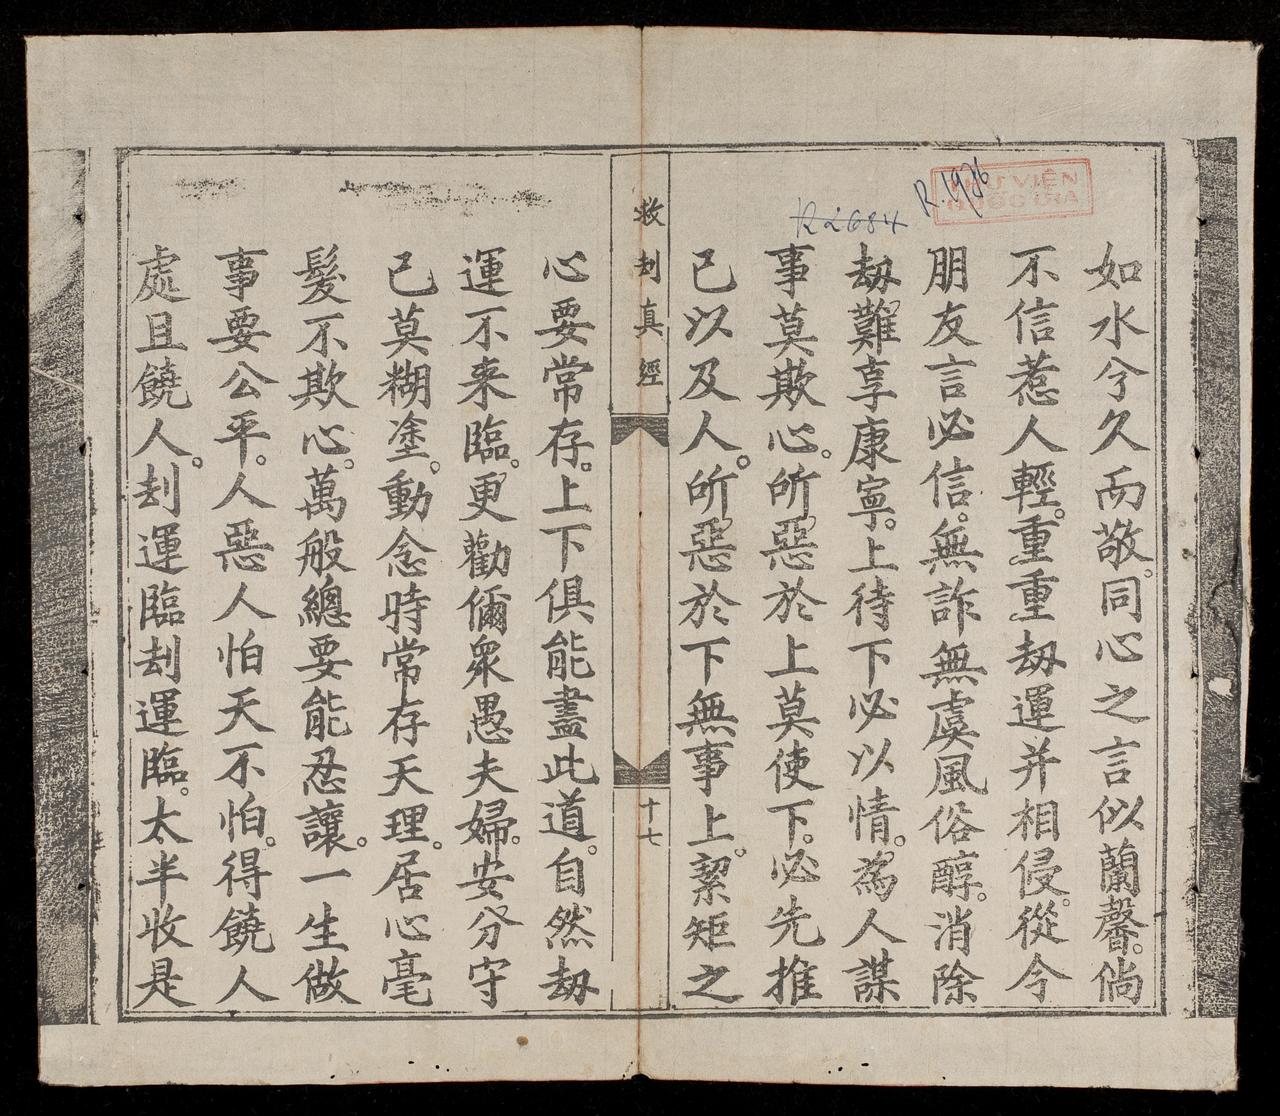 如水兮久而敬。同心之言似蘭馨。倘
不信惹人輕。重重劫運并相侵。從今
朋友言必信。無詐無虞風俗醇。消除
劫難享康寧。上待下必以情。為人謀
事莫欺心。所惡於上莫使下。必先推
己以及人。所惡於下無事上。絜矩之
救刦真經
十七
心要常存。上下俱能盡此道。自然劫
運不来臨。更勸伱衆愚夫婦。安分守
己莫糊塗。動念時常存天理。居心毫
髮不欺心。萬般總要能忍讓。一生做
事要公平。人惡人怕天不怕。得饒人
處且饒人。刦運臨刦運臨。太半收是
R 1976
THƯ VIỆN
QUỐC GIA
R 2684